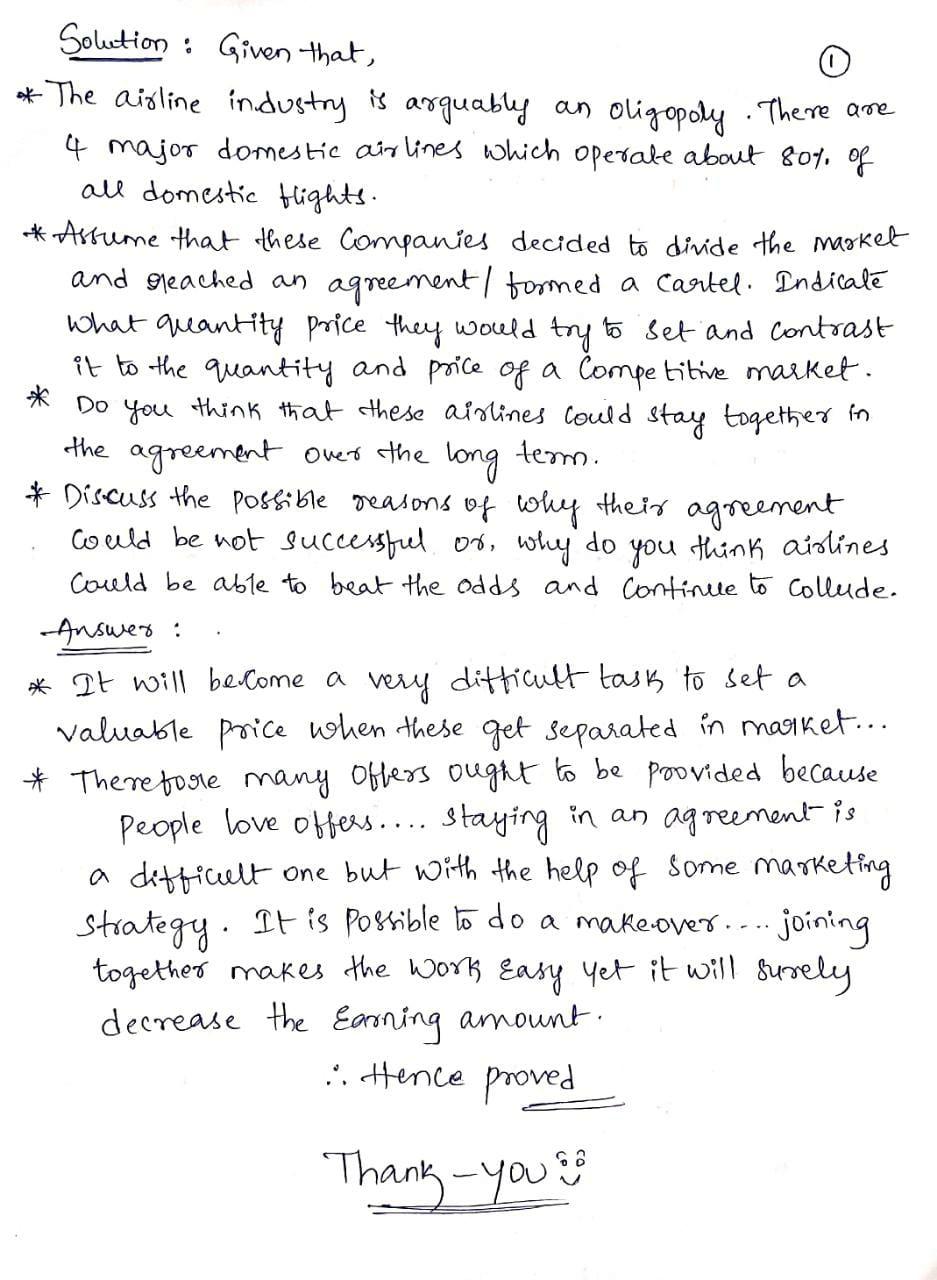 Solution : Given that,
①
* The airline industry is arguably an oligopoly. There are
4 major domestic airlines which operate about 80% of
all domestic flights.
* Assume that these Companies decided to divide the market
and reached an agreement/ formed a Cartel. Indicate
what quantity price they would try to set and contrast
it to the quantity and price of a Competitive market.
* Do you think that these airlines could stay together in
the agreement over the long term.
* Discuss the possible reasons of why their agreement
Could be not successful or, why do you think airlines
Could be able to beat the odds and Continue to Collude.
Answer :
* It will become a very difficult task to set a
valuable price when these get separated in market...
* Therefore many Offers ought to be provided because
People love offers.... Staying in an agreement is
a difficult one but with the help of some marketing
strategy. It is Possible to do a makeover.... joining
together makes the Work Easy yet it will surely
decrease the Earning amount.
∴ Hence proved
Thank-you